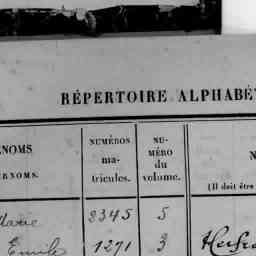 RÉPERTOIRE ALPHABÉT
NOMS
RNOMS.
NUMÉROS
ma-
tricules.
NU-
MÉRO
du
volume.
N
(Il doit être
Marie 2345 5
Emile 1271 3